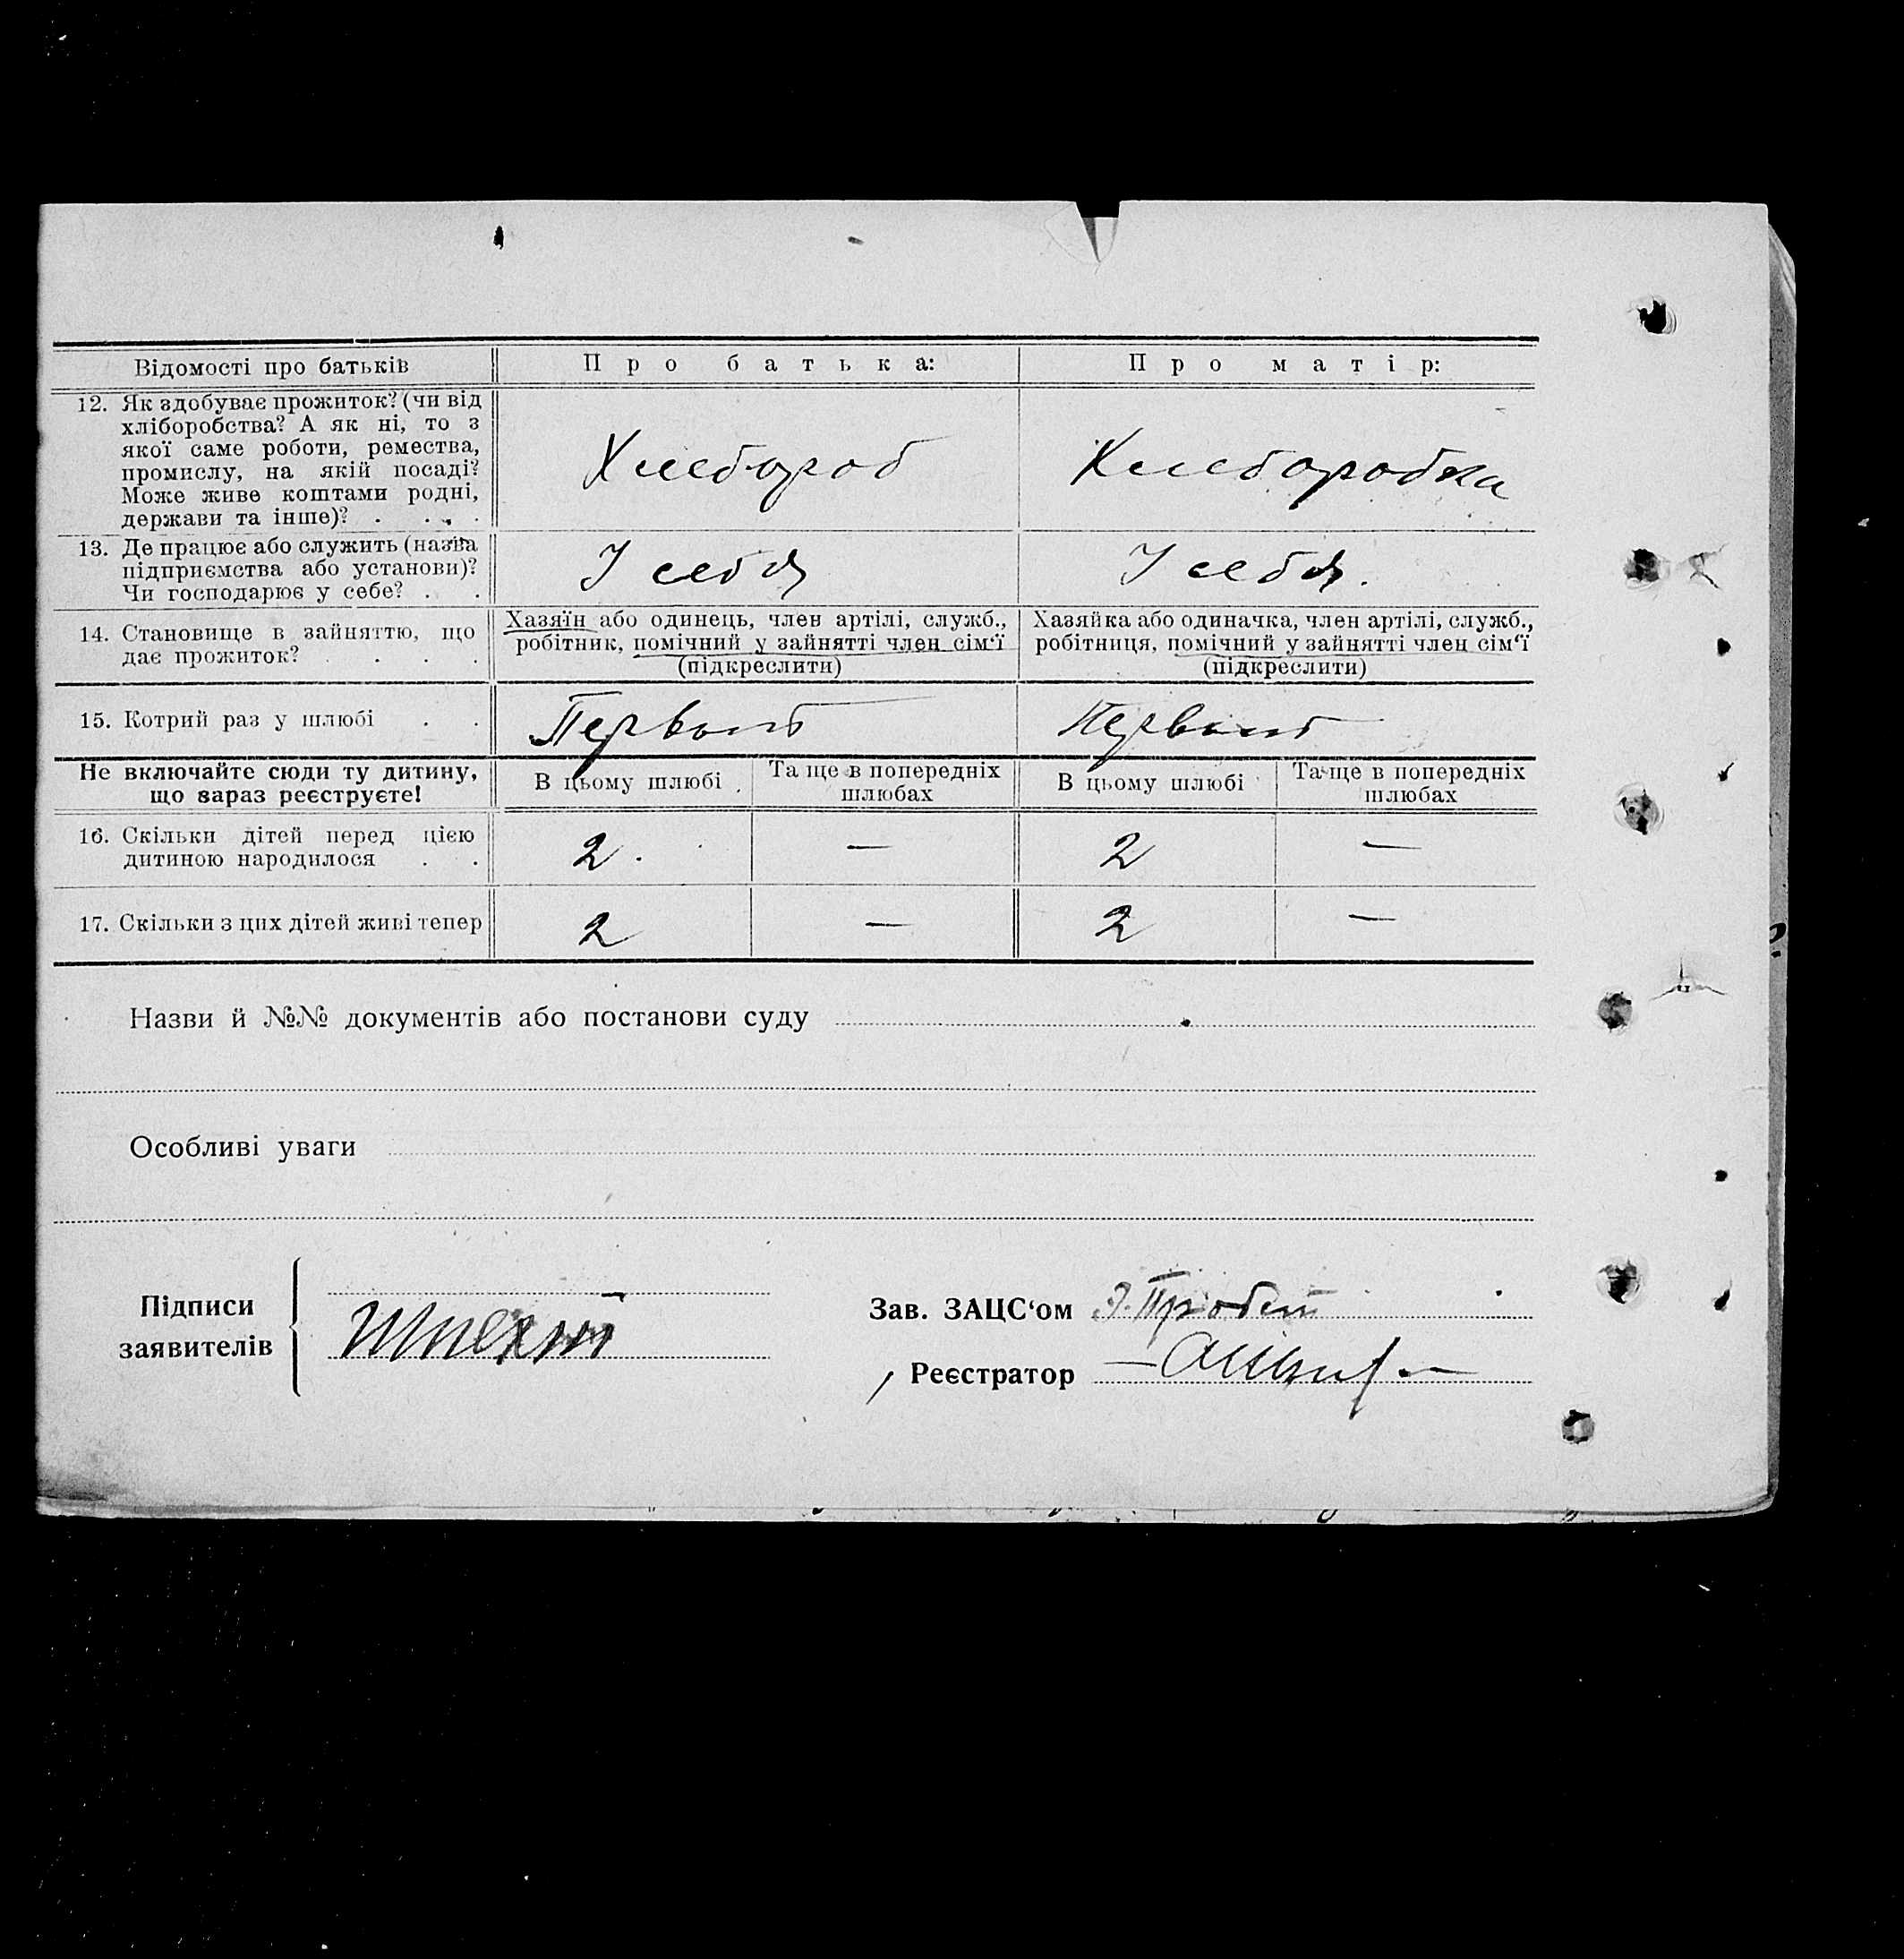 Відомості про батьків
Про батька:
Про матір:
12. Як здобуває прожиток? (чи від
хліборобства? А як ні, то з
якої саме роботи, ремества,
промислу, на якій посаді?
Може живе коштами родні,
держави та інше)? . . . .
Хлебороб
Хлеборобка
13. Де працює або служить (назва
підприємства або установи)?
Чи господарює у себе? . .
У себя
У себя.
14. Становище в зайняттю, що
дає прожиток? . . . .
Хазяїн або одинець, член артілі, служб.,
робітник, помічний у зайнятті член сім'ї
(підкреслити)
Хазяйка або одиначка, член артілі, служб.,
робітниця, помічний у зайнятті член сім'ї
(підкреслити)
15. Котрий раз у шлюбі . .
Первый
Первый
Не включайте сюди ту дитину,
що зараз реєструєте!
В цьому шлюбі
Та ще в попередніх
шлюбах
В цьому шлюбі
Та ще в попередніх
шлюбах
16. Скільки дітей перед цією
дитиною народилося . .
2. — 2 —
17. Скільки з цих дітей живі тепер
2 — 2 —
Назви й №№ документів або постанови суду
Особливі уваги
Підписи
заявителів
Зав. ЗАЦС'ом
Реєстратор